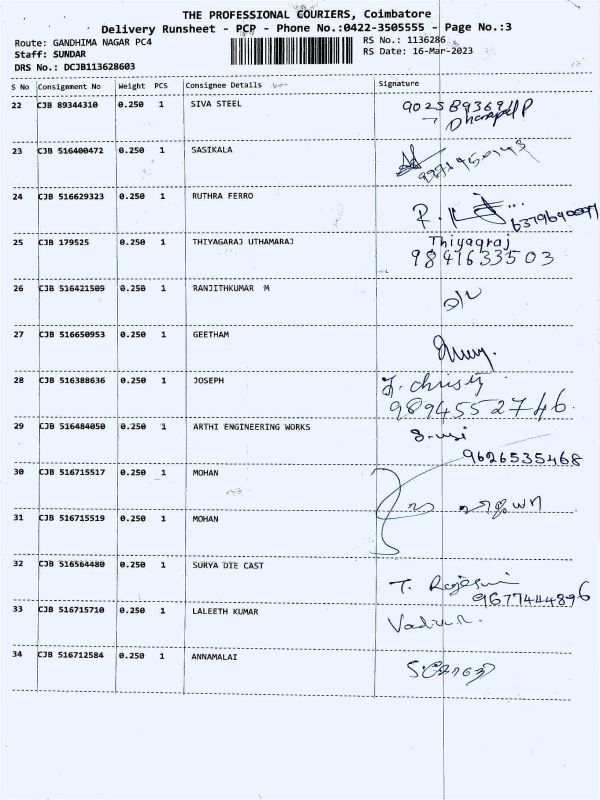 THE PROFESSIONAL COURIERS, Coimbatore
Delivery Runsheet - PCP - Phone No.:0422-3505555 - Page No.:3
Route: GANDHIMA NAGAR PC4 RS No.: 1136286
Staff: SUNDAR RS Date: 16-Mar-2023
DRS No.: DCJB113628603
S No Consignment No Weight PCS Consignee Details Signature
22 CJB 89344310 0.250 1 SIVA STEEL
23 CJB 516400472 0.250 1 SASIKALA
24 CJB 516629323 0.250 1 RUTHRA FERRO
25 CJB 179525 0.250 1 THIYAGARAJ UTHAMARAJ Thiyagraj
9841633503
26 CJB 516421509 0.250 1 RANJITHKUMAR M
27 CJB 516650953 0.250 1 GEETHAM
28 CJB 516388636 0.250 1 JOSEPH J. christy
9894552746.
29 CJB 516484050 0.250 1 ARTHI ENGINEERING WORKS
9626535468
30 CJB 516715517 0.250 1 MOHAN
31 CJB 516715519 0.250 1 MOHAN
32 CJB 516564480 0.250 1 SURYA DIE CAST
9677444896
33 CJB 516715710 0.250 1 LALEETH KUMAR
34 CJB 516712584 0.250 1 ANNAMALAI